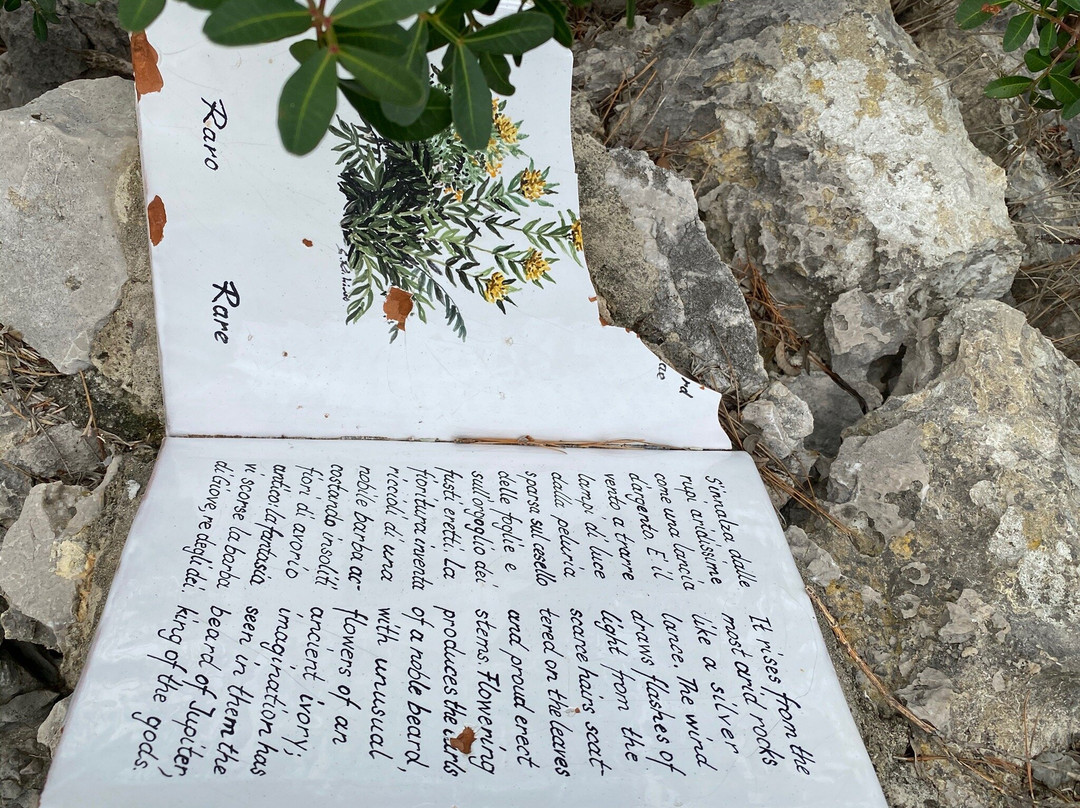 Raro Rare
S'innalza dalle
rupi aridissime
come una lancia
d'argento. E' il
vento a trarre
lampi di luce
dalla peluria
sparsa sul cesello
delle foglie e
sull'orgoglio dei
fusti eretti. La
fioritura inventa
riccioli di una
nobile barba ac-
costando insoliti
fiori di avorio
antico: la fantasia
vi scorse la barba
di Giove, re degli dei.
It rises from the
most arid rocks
like a silver
lance. The wind
draws flashes of
light from the
scarce hairs scat-
tered on the leaves
and proud erect
stems. Flowering
produces the curls
of a noble beard,
with unusual
flowers of an
ancient ivory;
imagination has
seen in them the
beard of Jupiter,
king of the gods.